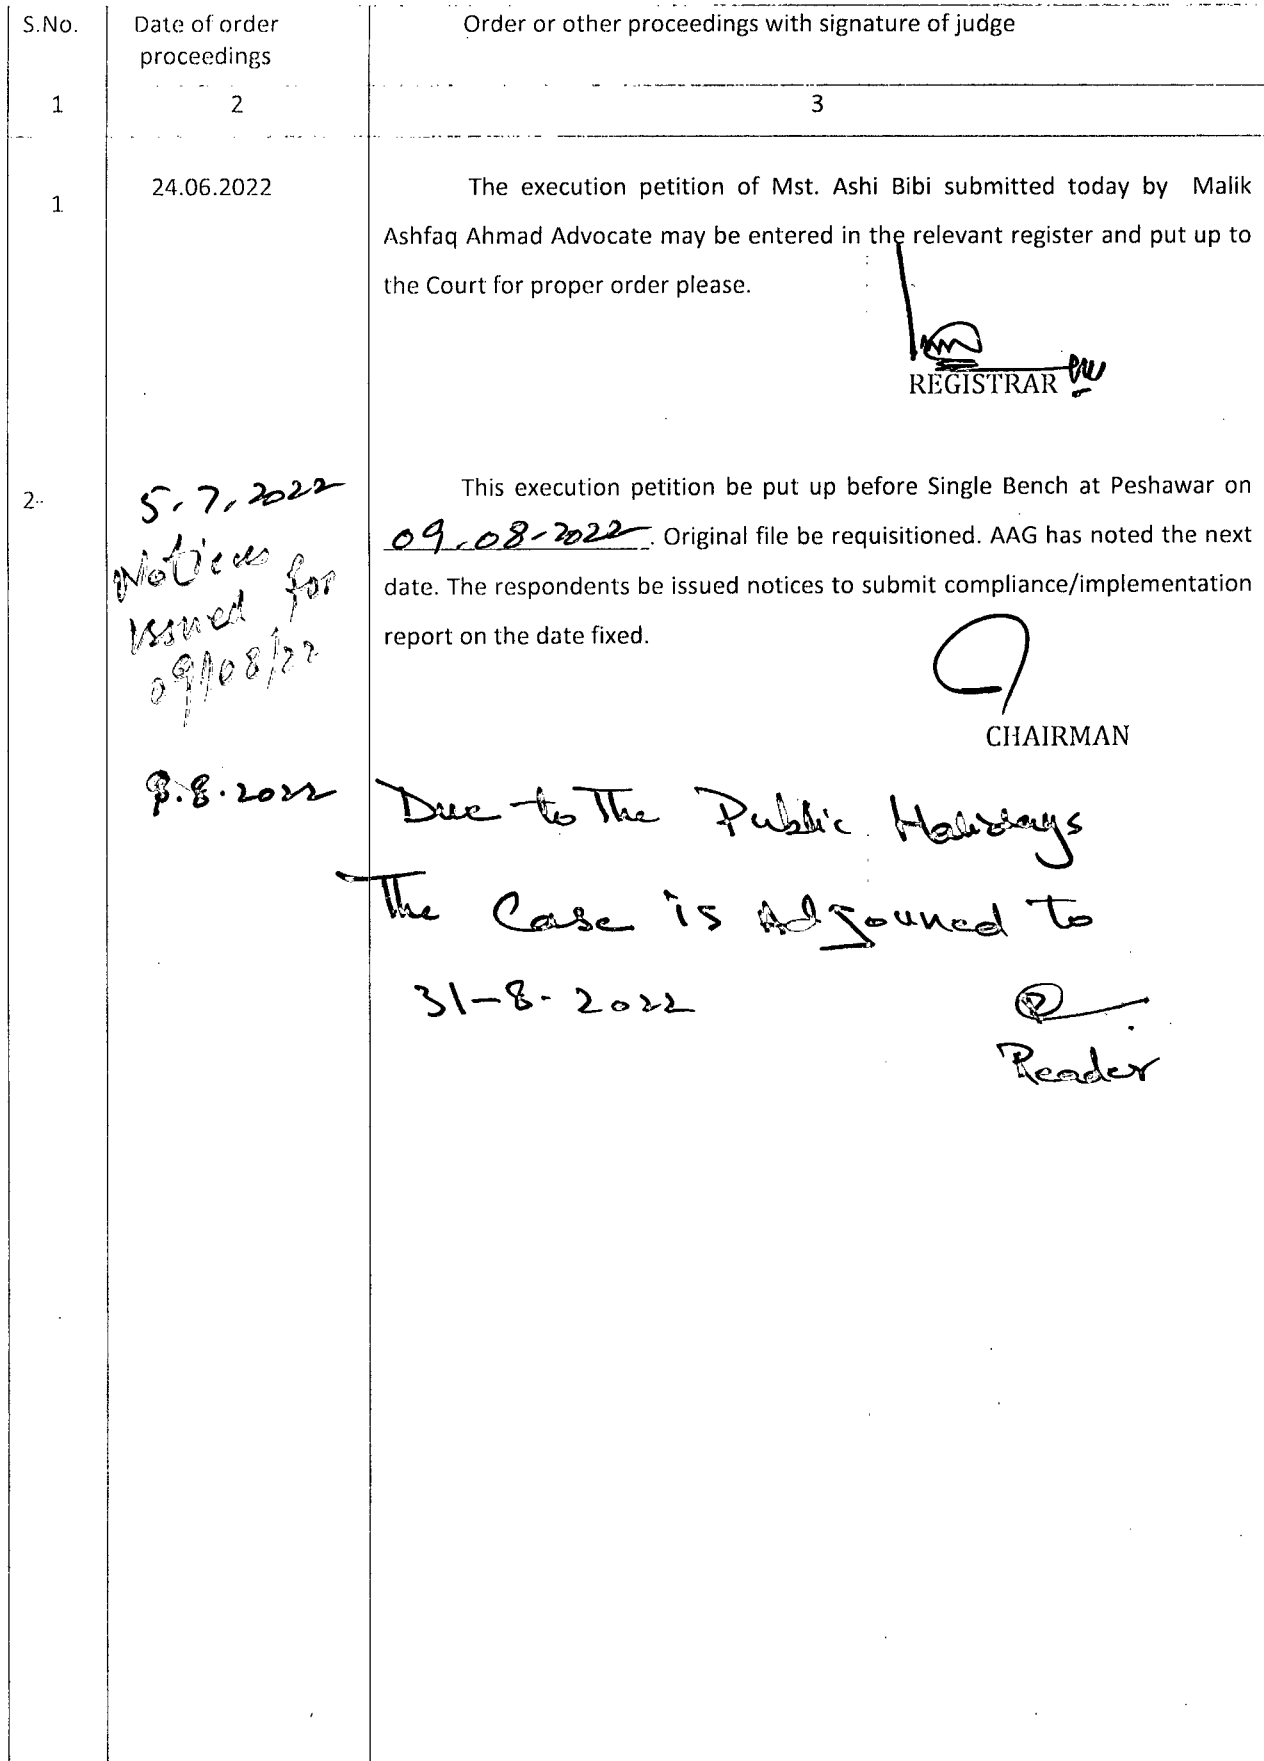 S.No.
Date of order
proceedings
Order or other proceedings with signature of judge
1
2
3
1
24.06.2022
The execution petition of Mst. Ashi Bibi submitted today by Malik
Ashfaq Ahmad Advocate may be entered in the relevant register and put up to
the Court for proper order please.
REGISTRAR
2.
5.7.2022
Notices
issued for
09/08/22
This execution petition be put up before Single Bench at Peshawar on
09.08-2022. Original file be requisitioned. AAG has noted the next
date. The respondents be issued notices to submit compliance/implementation
report on the date fixed.
CHAIRMAN
9.8.2022
Due to The Public Holidays
The Case is Adjouned to
31-8-2022
Reader